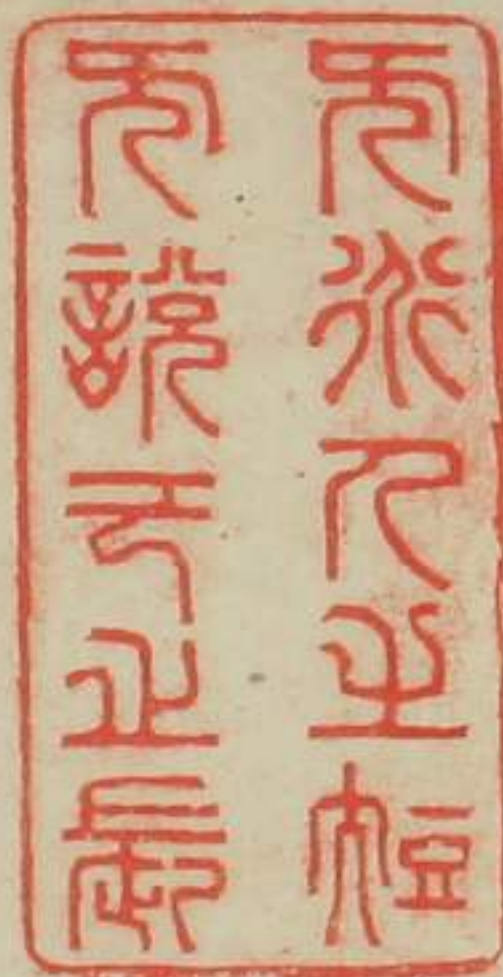 无道人之短
无說己之長